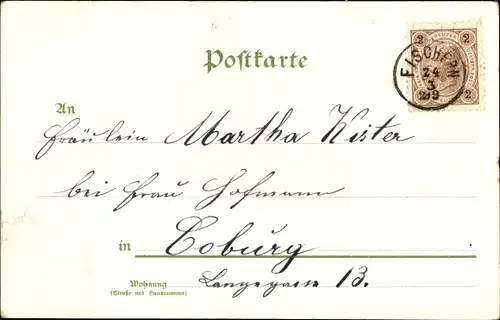 Postkarte
2 KREUZER 2
FISCHERN
24
3
99
2 2
An
Fräulein Martha Kister
bei Frau Hofmann
in Coburg
Wohnung
(Straße und Hausnummer)
Langegasse 13.